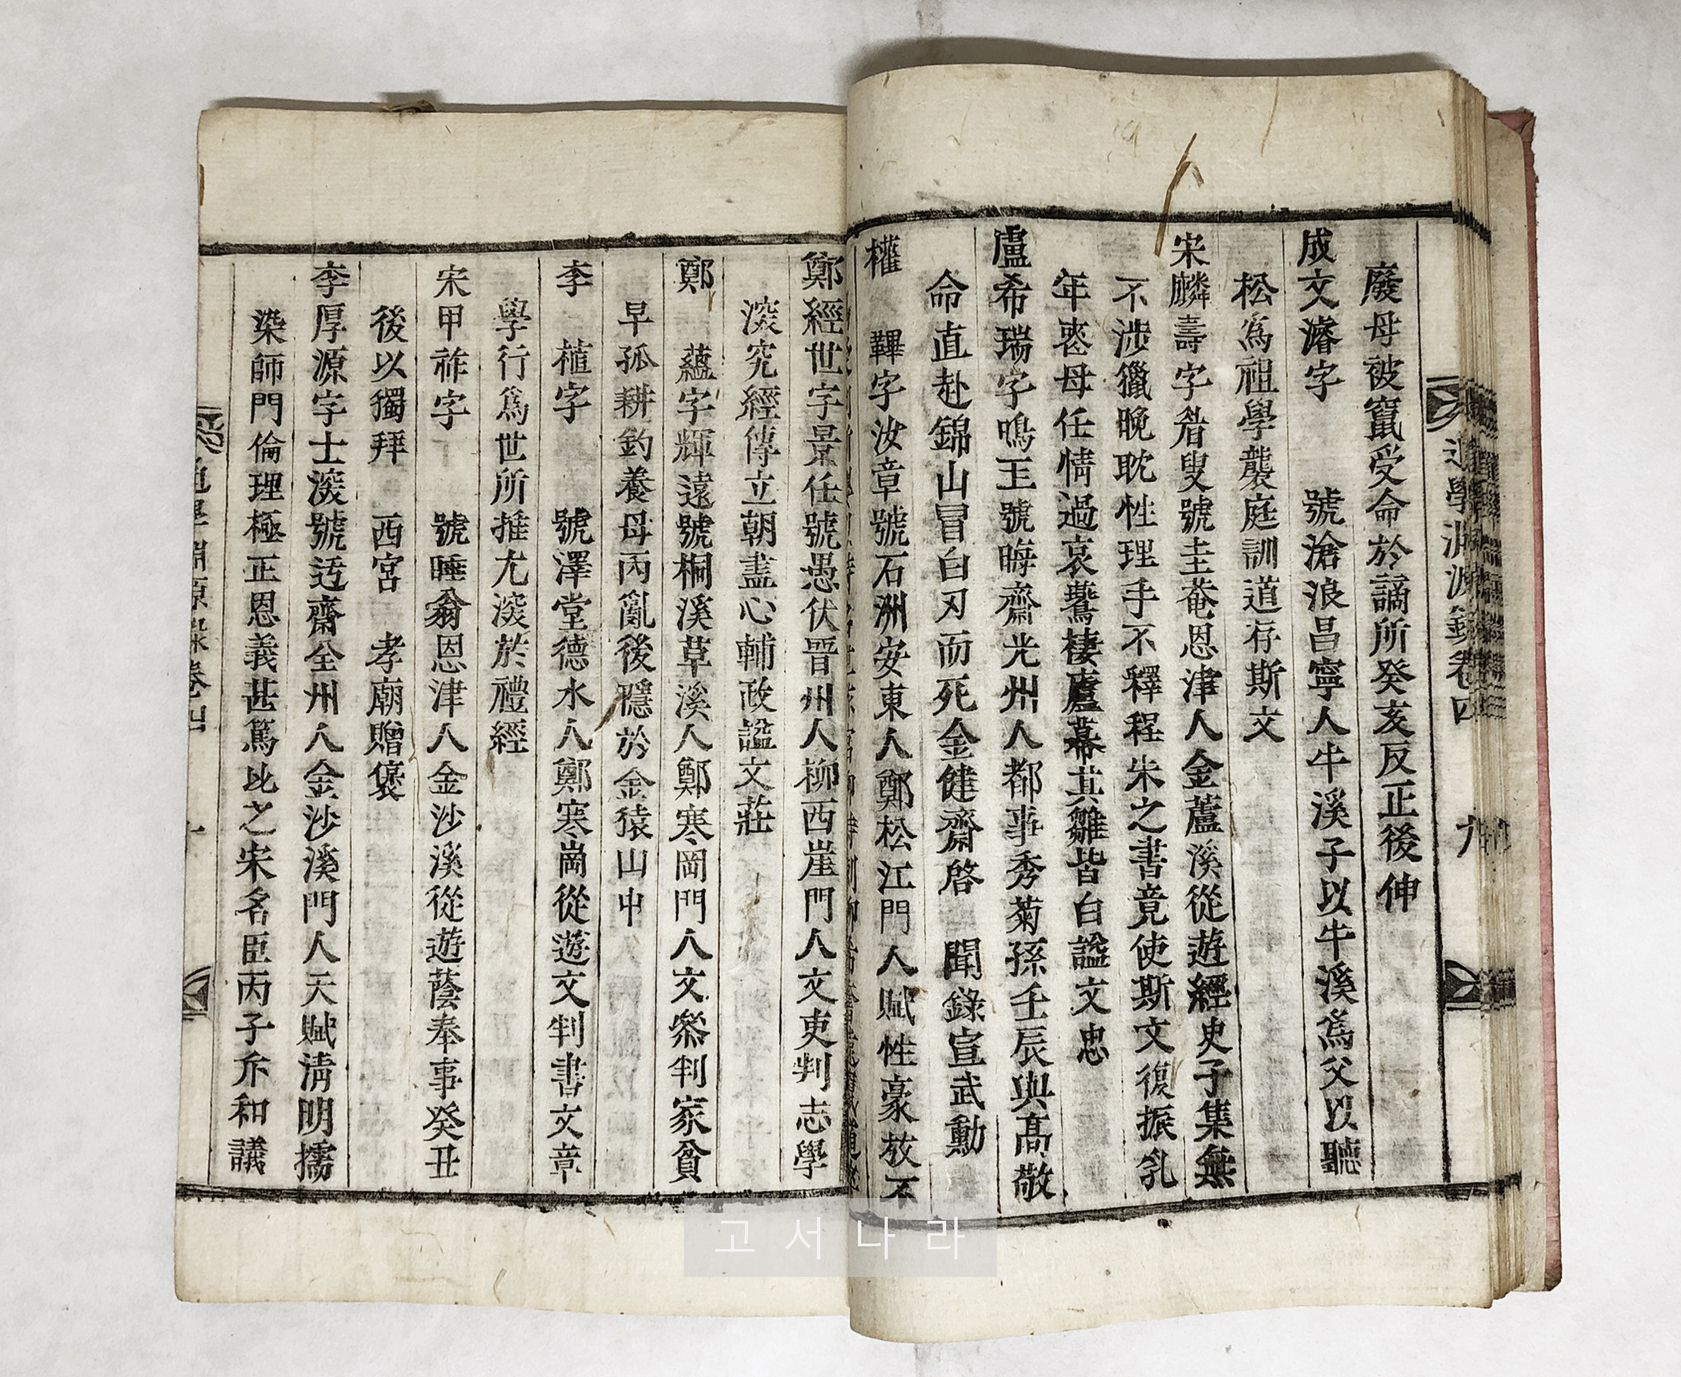 道學淵源錄卷四 九
廢母被竄受命於謫所癸亥反正後伸
成文濬字 號滄浪昌寧人牛溪子以牛溪爲父以聽
松爲祖學襲庭訓道存斯文
宋麟壽字眉叟號圭菴恩津人金蘆溪從遊經史子集無
不涉獵晚耽性理手不釋程朱之書竟使斯文復振乳
年喪母任情過哀鷰棲廬幕其雛皆白謚文忠
盧希瑞字鳴玉號晦齋光州人都事秀菊孫壬辰與高敬
命直赴錦山冒白刃而死金健齋啓 聞錄宣武勳
權 韠字汝章號石洲安東人鄭松江門人賦性豪放不
鄭經世字景任號愚伏晋州人柳西崖門人文吏判志學
湥究經傳立朝盡心輔政謚文莊
鄭 蘊字輝遠號桐溪草溪人鄭寒岡門人文叅判家貧
早孤耕釣養母丙亂後隱於金猿山中
李 植字 號澤堂德水人鄭寒崗從遊文判書文章
學行爲世所推尤湥於禮經
宋甲祚字 號睡翁恩津人金沙溪從遊蔭奉事癸丑
後以獨拜 西宮 孝廟贈褒
李厚源字士湥號迃齋全州人金沙溪門人天賦淸明擩
染師門倫理極正恩義甚篤比之宋名臣丙子斥和議